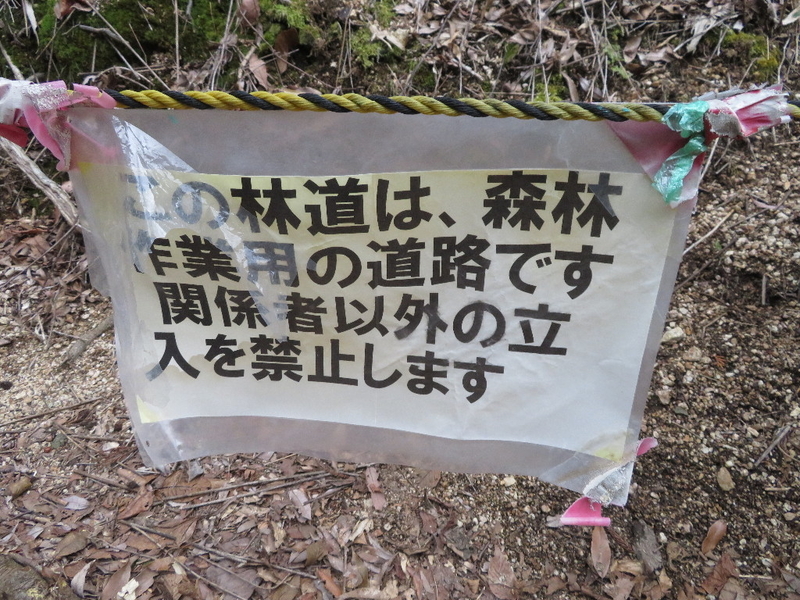 この林道は、森林
作業用の道路です
関係者以外の立
入を禁止します